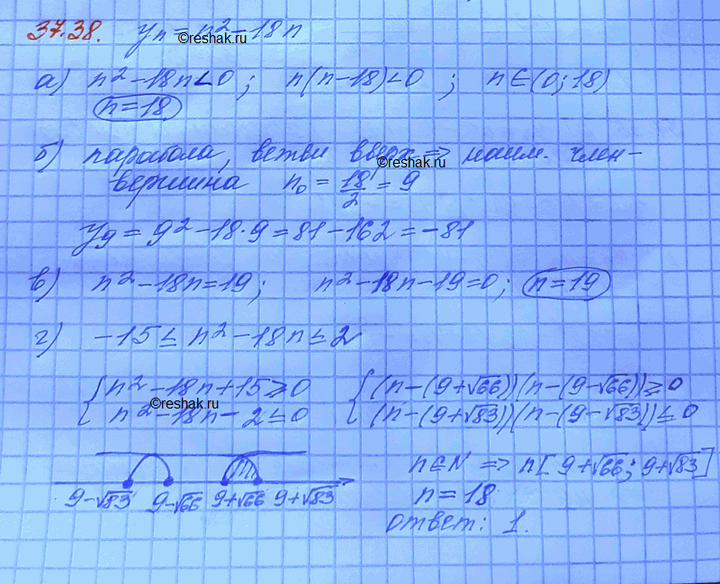 37.38. yₙ = n² - 18n
©reshak.ru
а) n² - 18n < 0; n(n-18) < 0; n ∈ (0; 18)
n = 18
б) парабола, ветви вверх ⇒ наим. член -
©reshak.ru
вершина n₀ = 18/2 = 9
y₉ = 9² - 18·9 = 81 - 162 = -81
в) n² - 18n = 19; n² - 18n - 19 = 0; n = 19
г) -15 ≤ n² - 18n ≤ 2
{ n² - 18n + 15 ≥ 0 { (n-(9+√66))(n-(9-√66)) ≥ 0
©reshak.ru
n² - 18n - 2 ≤ 0 (n-(9+√83))(n-(9-√83)) ≤ 0
9-√83 9-√66 9+√66 9+√83
n∈N ⇒ n[9+√66; 9+√83]
n = 18
ответ: 1.